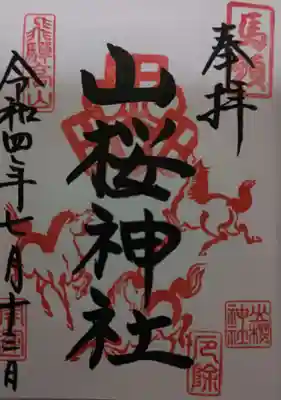 馬頭
奉拝
山桜神社
飛騨高山
令和四年七月十三日
山桜神社
厄除